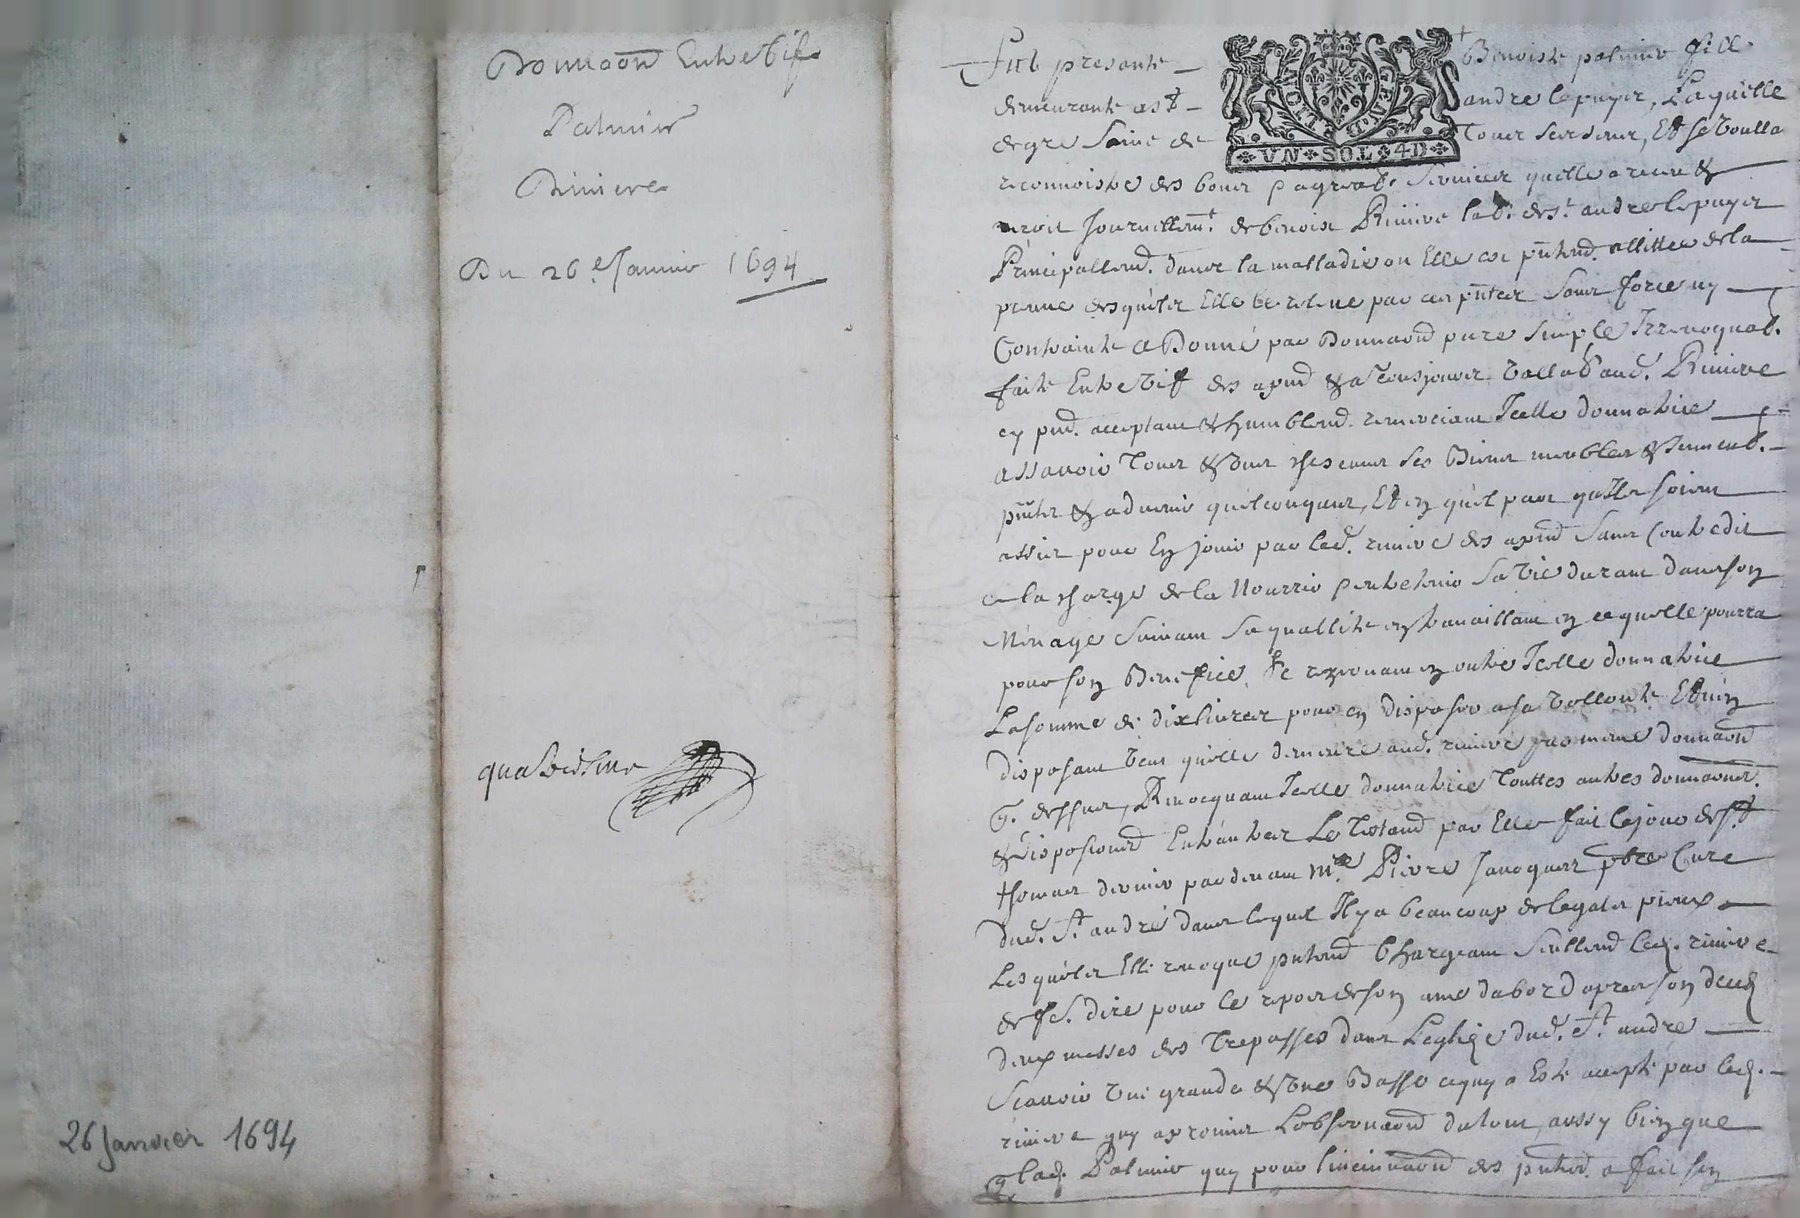 Donnaōn Entrevifs
Palmier
Riviere
Du 26e Janvier 1694
quatriesme
26 Janvier 1694
Fut presante Benoiste palmier fille
demeurante a St andre le puyer, Laquelle
de gre Suivie de Tous ses sœurs, Et se voulla
reconnoistre des bons & agreab. services quelle a receu &
recoit Journellemt. de benoist Riviere lab. de St andre le puyer
Principallemt. dans la malladie ou Elle est pntemt. allittee de la
Contrainte a Donné par Donnaōn pure simple Irrevoquab.
faitte Entrevif des apnt & a tousjours vallab. aud. Riviere
cy pnt. acceptant & humblemt. remerciant Icelle donnatrice
assavoir Tous & uns chescuns ses Biens meubles & Immeub.
pnts & advenir quelconques, Et en quel part quils soient
assis pour En jouir par led. riviere des apnt Sans Contredit
a la charge de la Nourrir & entretenir Sa vie durant dans son
Ménage Suivant Sa quallite en travaillant en ce quelle pourra
pour son Benefice, Se reservant en outre Icelle donnatrice
La somme de dix livres pour en disposer a sa vollonte Et n'en
disposant veut quelle demeure aud. riviere par mesme donnaōn
q. dessus, Revocquant Icelle donnatrice Touttes autres donnaōns
& disposions Entrautres Le Testamt par Elle fait le jour de St
Thomas dernier pardevant Mre Pierre Jacques pbre Cure
dud. St andré dans lequel Il y a beaucoup de legats pieux
Lesquels Elle revoque pntemt Chargeant Seullemt led. riviere
de fe. dire pour le repos de son ame dabord apres son deced
deux messes des Trepasses dans Leglise dud. St andre
Scavoir Une grande & Une Basse ce quy a Esté accepté par led.
riviere quy a promis Lobservaōn du tout, aussy bien que
lad. Palmier quy pour linsinuaōn des pntes. a fait son